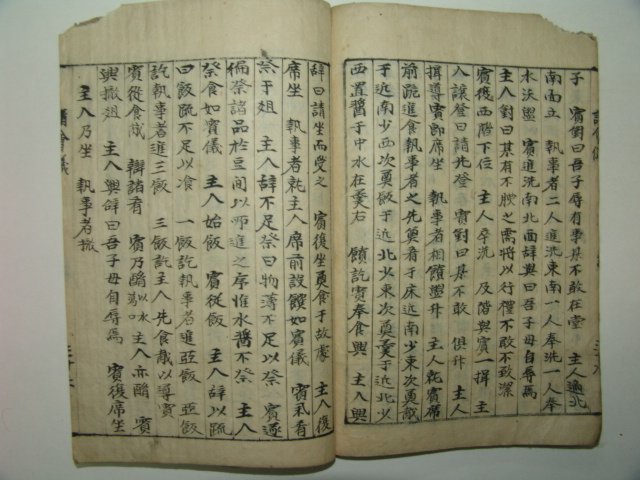 子 賓對曰吾子辱有事某不敢在堂 主人適北
南面立 執事者二人進洗東南一人奉洗一人奉
水沃盥 賓進洗南北面辭興曰吾子母自辱焉
主人對曰某有不腆之需將以行禮不敢不致潔
賓復西階下位 主人卒洗 及階與賓一揖 主
人讓登曰請先登 賓對曰某不敢 俱升 主人
揖導賓卽席坐 執事者相饋盥升 主人就賓席
前跪進食執事者之先奠肴于床近南少東次奠胾
于近南少西次奠飯于近北少東次奠羹于近北少
西置醬子中水在羹右 饋訖賓奉食興 主人興
辭曰請坐而受之 賓復坐奠食于故處 主人復
席坐 執事者就主人席前設饌如賓儀 賓取肴
祭于俎 主人辭不足祭曰物薄不足以祭 賓遂
徧祭諸品於豆間以所進之序惟水醬不祭 主人
祭食如賓儀 主人始飯 賓從飯 主人辭以疏
曰飯疏不足以飡 一飯訖執事者進亞飯 亞飯
訖執事者進三飯 三飯訖 主人先食胾以導賓
賓從食胾 辯諸肴 賓乃酳以水漱口 主人亦酳 賓
興撤俎 主人興辭曰吾子母自辱焉 賓復席坐
主人乃坐 執事者撤